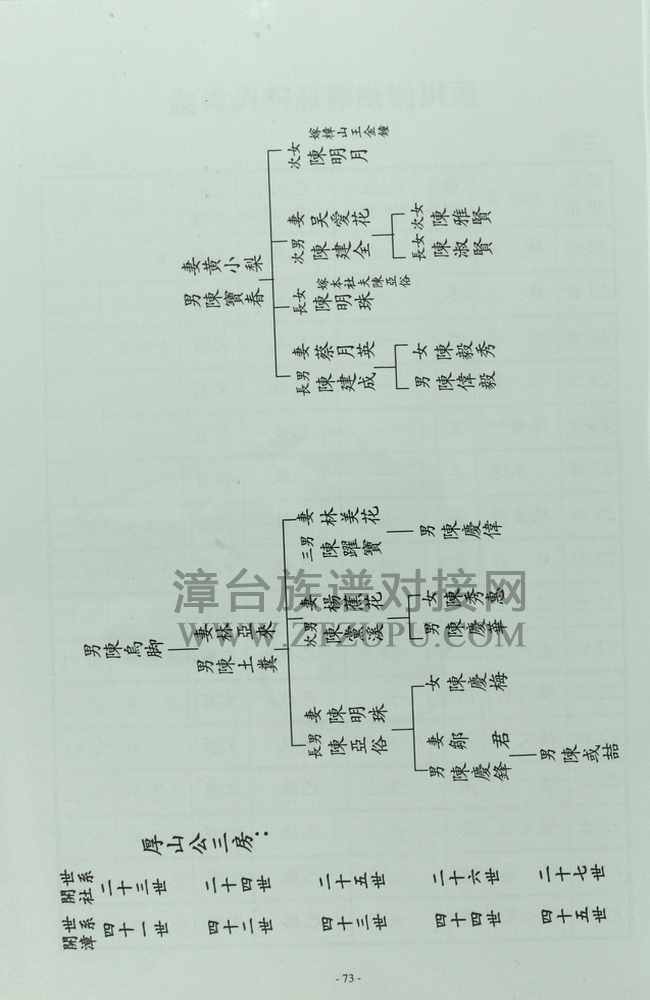 厚山公三房：
開漳世系
開社世系
四十一世
二十三世
四十二世
二十四世
四十三世
二十五世
四十四世
二十六世
四十五世
二十七世
男陳烏脚
男陳土糞
妻林亞來
長男陳亞俗
妻陳明珠
男陳慶鋒
妻鄒君
男陳或喆
女陳慶梅
次男陳黨溪
妻楊蕉花
男陳慶華
女陳秀惠
三男陳躍寶
妻林美花
男陳慶偉
男陳寶春
妻黃小梨
長男陳建成
妻蔡月英
男陳偉毅
女陳毅秀
長女陳明珠
嫁本社夫陳亞俗
次男陳建全
妻吳愛花
長女陳淑賢
次女陳雅賢
次女陳明月
嫁樟山王金鐘
漳台族谱对接网
WWW.ZTZUPU.COM
- 73 -